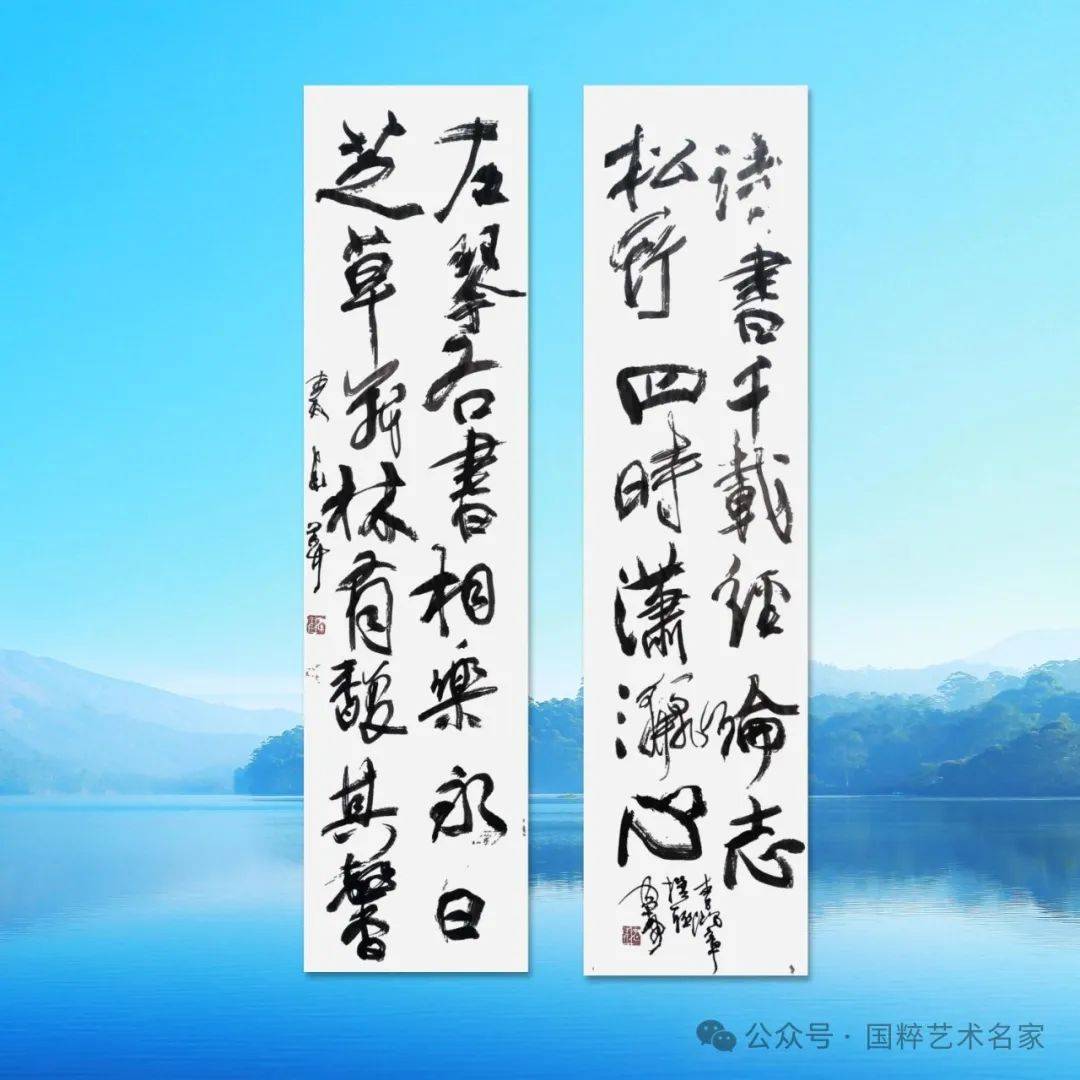 讀書千載經綸志
松竹四時瀟灑心
左琴右書相樂永日
芝草林有馥其馨
公众号·国粹艺术名家